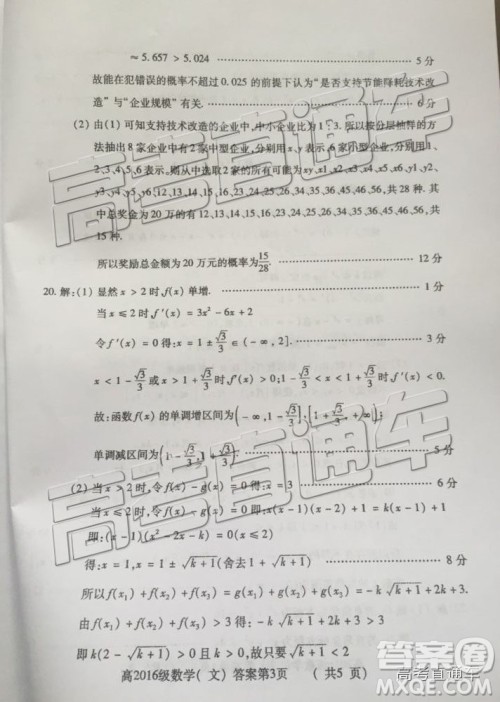 ≈ 5.657 > 5.024 ………… 5 分
故能在犯错误的概率不超过 0.025 的前提下认为“是否支持节能降耗技术改
造”与“企业规模”有关. ………… 6 分
(2) 由(1) 可知支持技术改造的企业中,中小企业比为1∶3. 所以按分层抽样的方
法抽出8 家企业中有2 家中型企业,分别用x、y表示;6 家小型企业,分别用1、
2、3、4、5、6 表示,则从中选取2 家的所有可能为xy、x1、x2、x3、x4、x5、x6、y1、y2、
y3、y4、y5、y6、12、13、14、15、16、23、24、25、26、34、35、36、45、46、56,共28 种. 其
中总奖金为20 万的有12、13、14、15、16、23、24、25、26、34、35、36、45、46、56,共
15 种.
所以奖励总金额为 20 万元的概率为15/28. ………… 12 分
20. 解:(1) 显然 x > 2 时,f(x) 单增. ………… 1 分
当 x ≤ 2 时,f′(x) = 3x² − 6x + 2
令 f′(x) = 0 得:x = 1 ± √3/3 ∈ (− ∞ , 2]. ………… 3 分
x < 1 − √3/3 或 x > 1 + √3/3 时,f′(x) > 0;1 − √3/3 < x < 1 + √3/3 时,f′(x) < 0.
故:函数 f(x) 的单调增区间为(− ∞ ,1 − √3/3],[1 + √3/3, + ∞);
单调减区间为(1 − √3/3,1 + √3/3). ………… 5 分
(2) 当 x > 2 时,令 f(x) − g(x) = 0 得:x = 3 ………… 6 分
当 x ≤ 2 时,令 f(x) − g(x) = 0 即:x(x − 1)(x − 2) + 1 = kx + 1 − k
即:(x − 1)(x² − 2x − k) = 0(x ≤ 2)
得:x = 1,x = 1 ± √(k + 1)(舍去1 + √(k + 1)) ………… 8 分
所以 f(x₁) + f(x₂) + f(x₃) = g(x₁) + g(x₂) + g(x₃) = − k√(k + 1) + 2k + 3.
由 f(x₁) + f(x₂) + f(x₃) > 3 得: − k√(k + 1) + 2k + 3 > 3
即 k(2 − √(k + 1)) > 0 且 k > 0,故只要 √(k + 1) < 2
高2016级数学( 文) 答案第3页 ( 共5 页)
高考直通车
高考直通车
高考直通车
作业帮
高考直通车
MXQE.COM